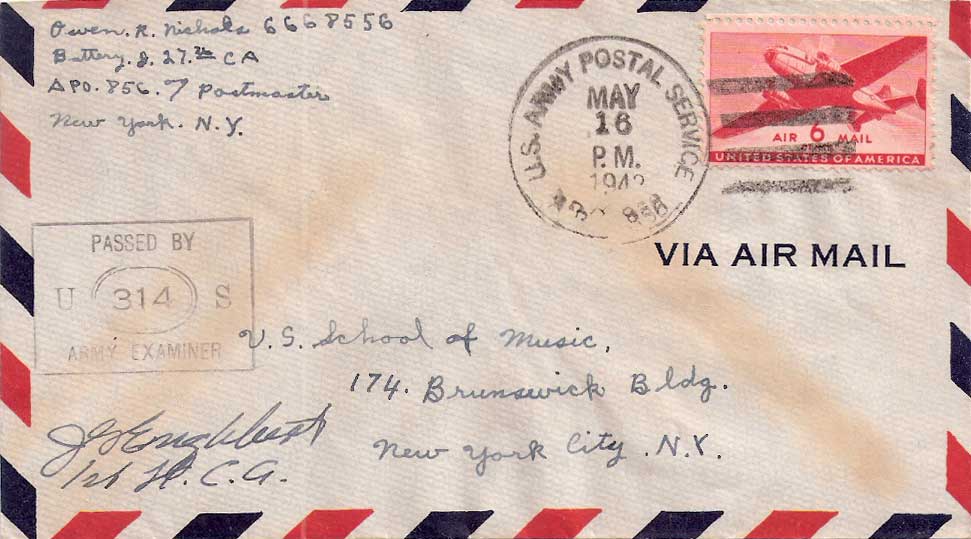 Owen. R. Nichols 6668556
Battery. J. 27.th CA
APO. 856. % Postmaster
New York. N.Y.
U.S. ARMY POSTAL SERVICE
MAY
16
P.M.
194
AIR 6 MAIL
UNITED STATES OF AMERICA
VIA AIR MAIL
PASSED BY
U 314 S
ARMY EXAMINER
U.S. School of Music,
174. Brunswick Bldg.
New York City, N.Y.